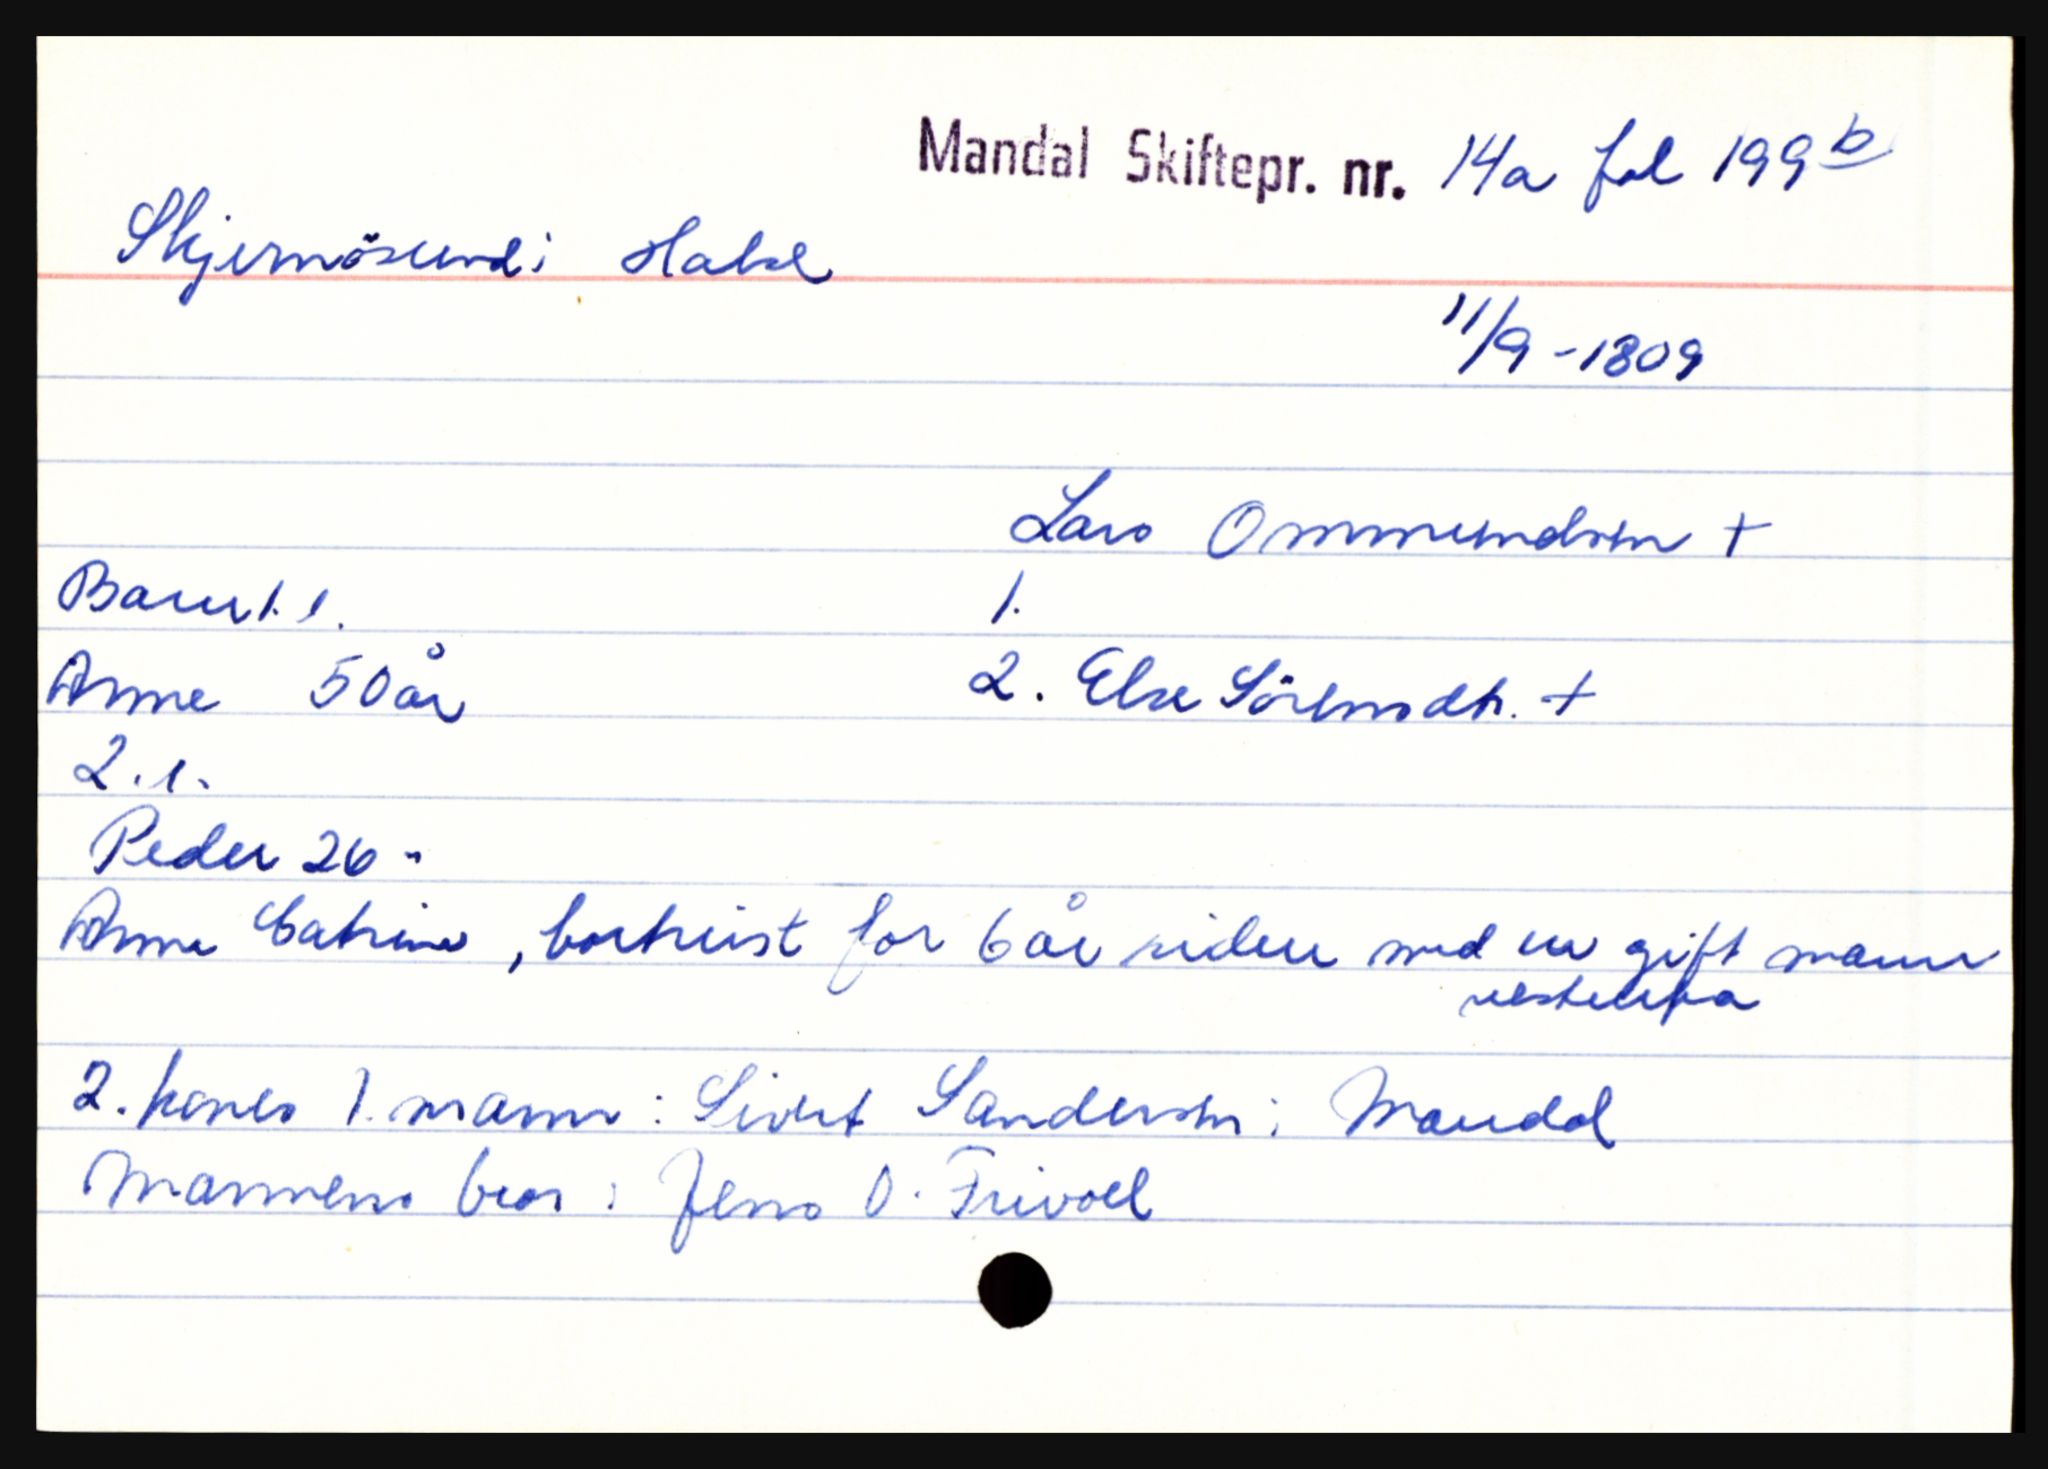 Mandal Skiftepr. nr. 14a fol 199 b
Skjernösund i Halse
11/9 - 1809
Lars Ommundsen +
Barn 1. 1. 1.
Anne 50 år 2. Else Sörensdtr. +
2. 1.
Peder 26 "
Anne Catrine, bortreist for 6 år siden med en gift mann
vestenfra
2. kones 1. mann: Sivert Sandersen i Mandal
Mannens bror: Jens O. Trivoll